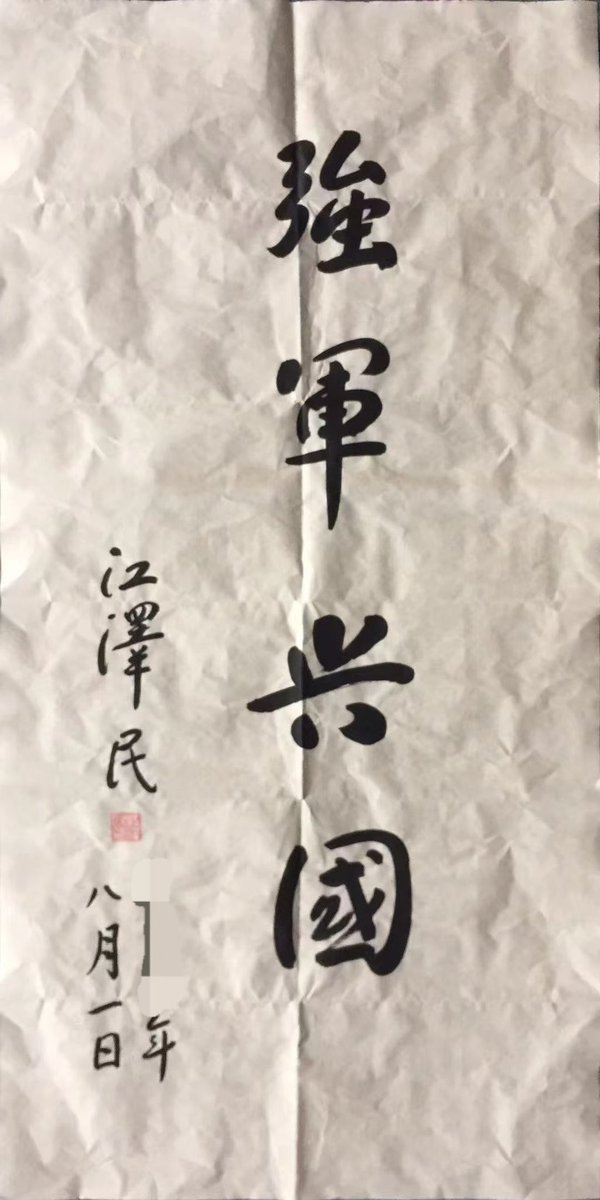 強軍兴國
江澤民
年
八月一日